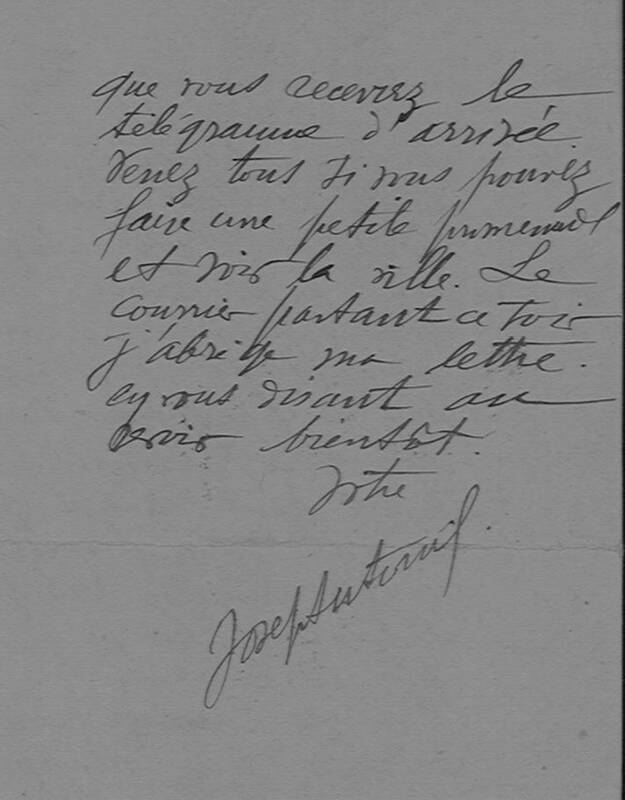 que vous recevrez le
télégramme d'arrivée.
Venez tous si vous pouvez
faire une petite promenade
et voir la ville. Le
courrier partant ce soir
j'abrège ma lettre.
en vous disant au
revoir bientôt.
Votre
Joseph